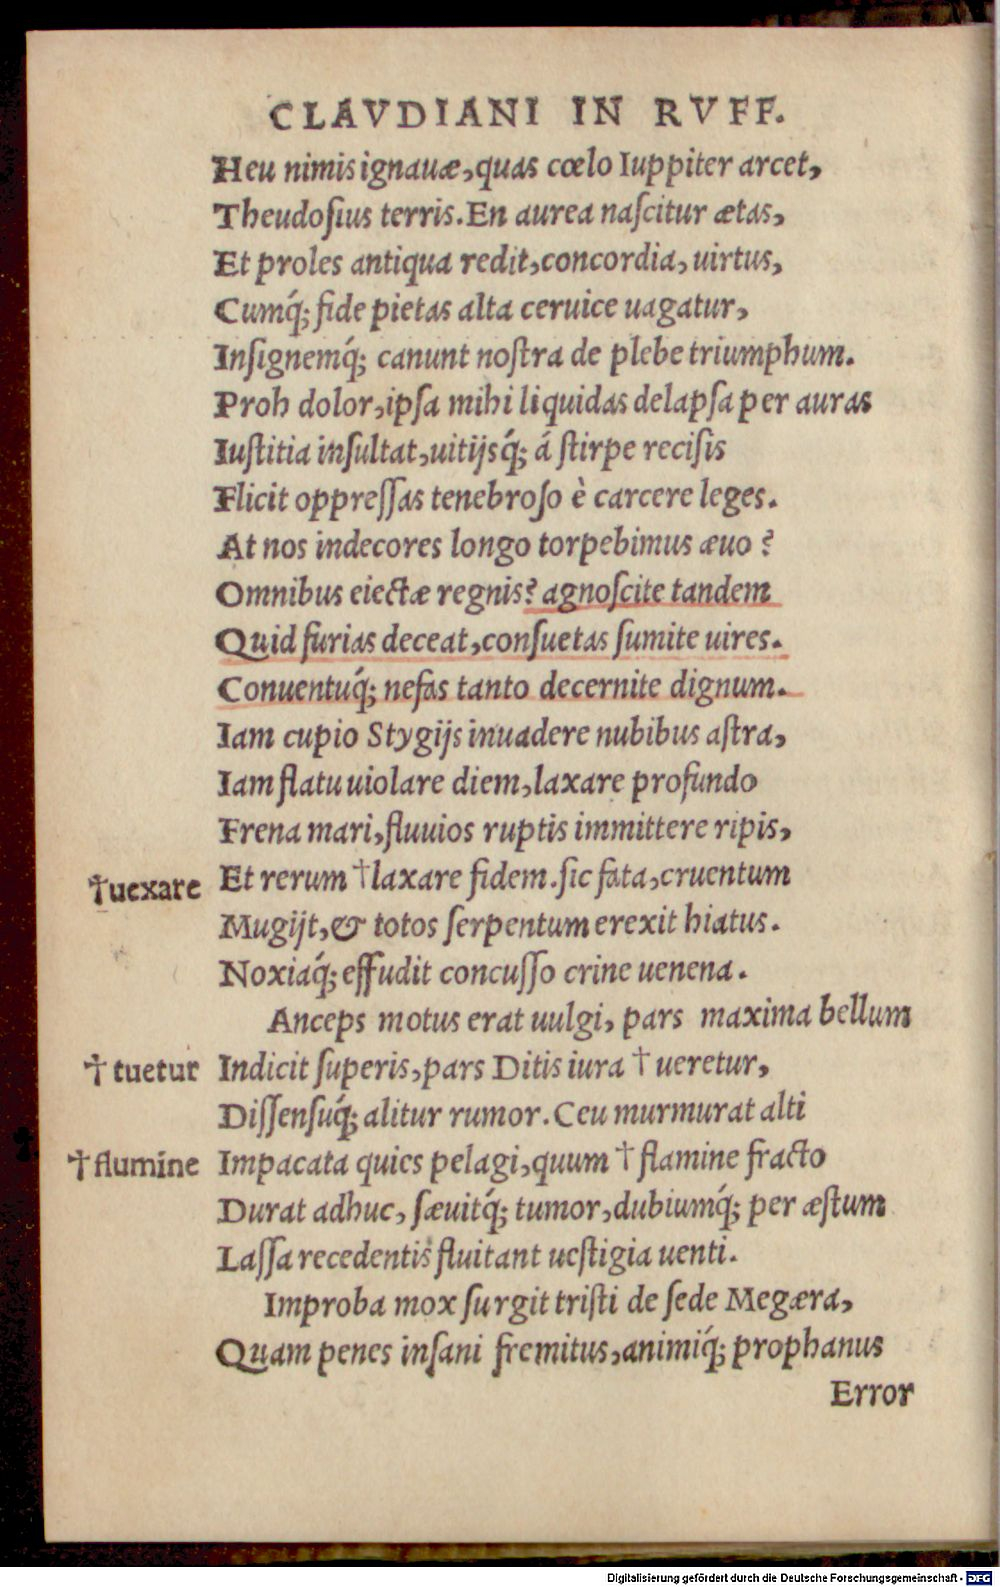 CLAVDIANI IN RVFF.
Heu nimis ignauæ, quas cœlo Iuppiter arcet,
Theudoſius terris. En aurea naſcitur ætas,
Et proles antiqua redit, concordia, uirtus,
Cumq́; fide pietas alta ceruice uagatur,
Inſignemq́; canunt noſtra de plebe triumphum.
Proh dolor, ipſa mihi liquidas delapſa per auras
Iuſtitia inſultat, uitijsq́; á ſtirpe reciſis
Flicit oppreſſas tenebroſo è carcere leges.
At nos indecores longo torpebimus æuo?
Omnibus eiectæ regnis? agnoſcite tandem
Quid furias deceat, conſuetas ſumite uires.
Conuentuq́; nefas tanto decernite dignum.
Iam cupio Stygijs inuadere nubibus aſtra,
Iam flatu uiolare diem, laxare profundo
Frena mari, fluuios ruptis immittere ripis,
†uexare Et rerum †laxare fidem. ſic fata, cruentum
Mugijt, & totos ſerpentum erexit hiatus.
Noxiaq́; effudit concuſſo crine uenena.
Anceps motus erat uulgi, pars maxima bellum
†tuetur Indicit ſuperis, pars Ditis iura † ueretur,
Diſſenſuq́; alitur rumor. Ceu murmurat alti
†flumine Impacata quies pelagi, quum † flamine fracto
Durat adhuc, ſæuitq́; tumor, dubiumq́; per æſtum
Laſſa recedentis fluitant ueſtigia uenti.
Improba mox ſurgit triſti de ſede Megæra,
Quam penes inſani fremitus, animiq́; prophanus
Error
Digitalisierung gefördert durch die Deutsche Forschungsgemeinschaft - DFG